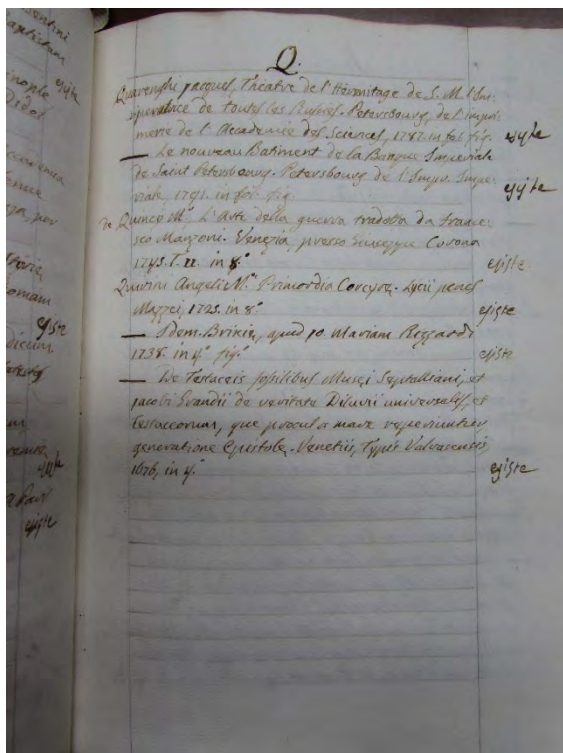 Q.
Quarenghi Jacques, Theatre de l'Hermitage de S. M. l'Im-
peratrice de toutes les Russies. Petersbourg, de l'Impri-
merie de l'Accademie des Sciences, 1787. in fol. fig. existe
— Le nouveau Batiment de la Banque Imperiale
de Saint Petersbourg. Petersbourg de l'Impr. Impe-
riale, 1791. in fol. fig. existe
de Quincy Mr. L'Arte della guerra tradotta da France-
sco Manzoni. Venezia, presso Giuseppe Corona
1745. T. II. in 8.° existe
Quirini Angeli M. Primordia Corcyræ. Lycii penes
Mazzei, 1725. in 8.° existe
— Idem. Brixiæ, apud Jo. Mariam Rizzardi
1738. in 4.° fig.° existe
— De Testaceis fossilibus Musei Septalliani, et
Jacobi Grandii de veritate Diluvii universalis, et
testaceorum, que procul a mare reperiuntur
generatione Epistole. Venetiis, Typis Valvasensis
1676. in 4.° existe
existe
existe
existe
existe